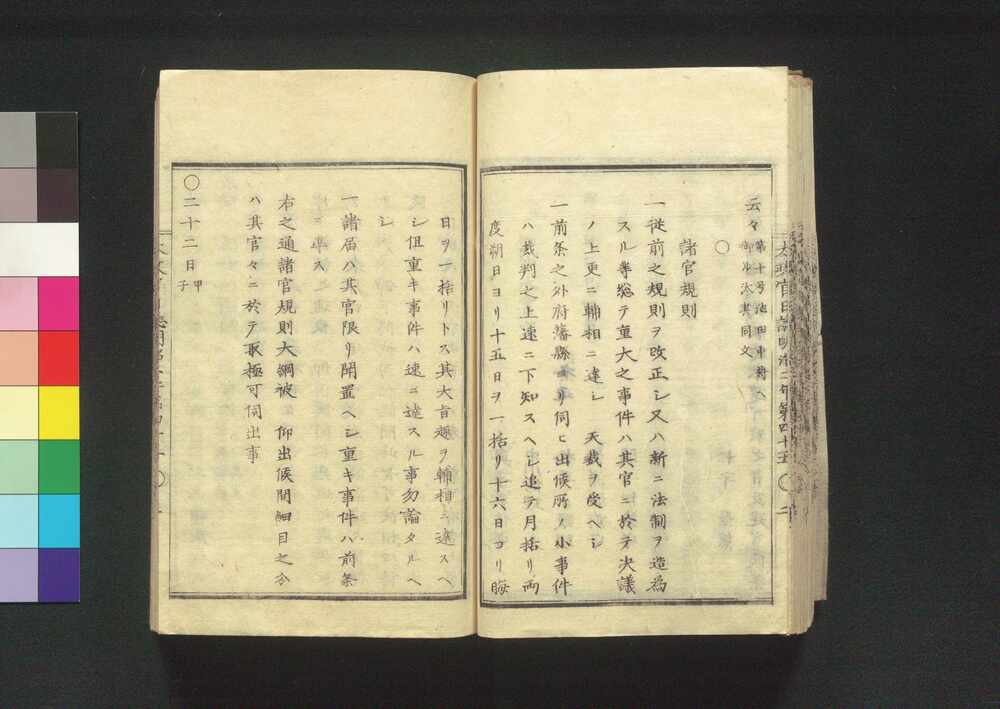 云々 第十号池田中将ヘ
御ル汰其同文
〇
諸官規則
一従前之規則ヲ改正シ又ハ新ニ法制ヲ造為
スル等総テ重大之事件ハ其官ニ於テ决議
ノ上更ニ輔相ニ達シ 天裁ヲ受ヘシ
一前条之外府藩縣ヨリ伺ヒ出候所ノ小事件
ハ裁判之上速ニ下知スヘシ追テ月括リ両
度朔日ヨリ十五日ヲ一括リ十六日ヨリ晦
日ヲ一括リトス其大旨趣ヲ輔相ニ達スヘ
シ但重キ事件ハ速ニ達スル事勿論タルヘ
シ
一諸届ハ其官限リ聞置ヘシ重キ事件ハ前条
ニ準ス
右之通諸官規則大綱被 仰出候間細目之令
ハ其官々ニ於テ取極可伺出事
〇二十二日甲子
太政官日誌明治二年第四十五 〇 二